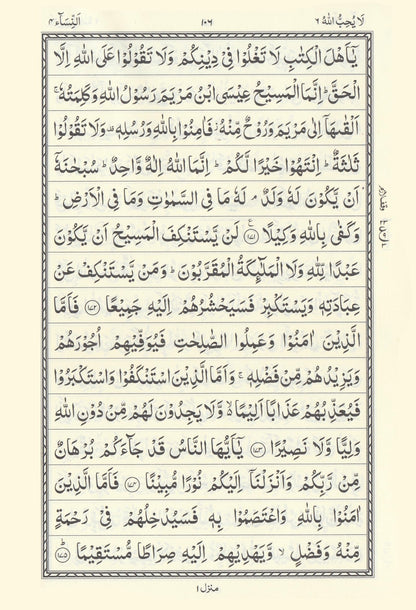 لَا يُحِبُّ اللّٰهُ ٦ ١٠٦ اَلنِّسَآء ٤
يٰۤاَهْلَ الْكِتٰبِ لَا تَغْلُوْا فِيْ دِيْنِكُمْ وَلَا تَقُوْلُوْا عَلَى اللّٰهِ اِلَّا
الْحَقَّ ؕ اِنَّمَا الْمَسِيْحُ عِيْسَى ابْنُ مَرْيَمَ رَسُوْلُ اللّٰهِ وَكَلِمَتُهٗ ۚ
اَلْقٰىهَاۤ اِلٰى مَرْيَمَ وَرُوْحٌ مِّنْهُ ؗ فَاٰمِنُوْا بِاللّٰهِ وَرُسُلِهٖ ۚ وَلَا تَقُوْلُوْا
ثَلٰثَةٌ ؕ اِنْتَهُوْا خَيْرًا لَّكُمْ ؕ اِنَّمَا اللّٰهُ اِلٰهٌ وَّاحِدٌ ؕ سُبْحٰنَهٗۤ
اَنْ يَّكُوْنَ لَهٗ وَلَدٌ ۘ لَهٗ مَا فِي السَّمٰوٰتِ وَمَا فِي الْاَرْضِ ؕ
وَكَفٰى بِاللّٰهِ وَكِيْلًا ﴿١٧١﴾ لَنْ يَّسْتَنْكِفَ الْمَسِيْحُ اَنْ يَّكُوْنَ
عَبْدًا لِّلّٰهِ وَلَا الْمَلٰٓئِكَةُ الْمُقَرَّبُوْنَ ؕ وَمَنْ يَّسْتَنْكِفْ عَنْ
عِبَادَتِهٖ وَيَسْتَكْبِرْ فَسَيَحْشُرُهُمْ اِلَيْهِ جَمِيْعًا ﴿١٧٢﴾ فَاَمَّا
الَّذِيْنَ اٰمَنُوْا وَعَمِلُوا الصّٰلِحٰتِ فَيُوَفِّيْهِمْ اُجُوْرَهُمْ
وَيَزِيْدُهُمْ مِّنْ فَضْلِهٖ ۚ وَاَمَّا الَّذِيْنَ اسْتَنْكَفُوْا وَاسْتَكْبَرُوْا
فَيُعَذِّبُهُمْ عَذَابًا اَلِيْمًا ۙ وَّلَا يَجِدُوْنَ لَهُمْ مِّنْ دُوْنِ اللّٰهِ
وَلِيًّا وَّلَا نَصِيْرًا ﴿١٧٣﴾ يٰۤاَيُّهَا النَّاسُ قَدْ جَآءَكُمْ بُرْهَانٌ
مِّنْ رَّبِّكُمْ وَاَنْزَلْنَاۤ اِلَيْكُمْ نُوْرًا مُّبِيْنًا ﴿١٧٤﴾ فَاَمَّا الَّذِيْنَ
اٰمَنُوْا بِاللّٰهِ وَاعْتَصَمُوْا بِهٖ فَسَيُدْخِلُهُمْ فِيْ رَحْمَةٍ
مِّنْهُ وَفَضْلٍ ۙ وَّيَهْدِيْهِمْ اِلَيْهِ صِرَاطًا مُّسْتَقِيْمًا ؕ ﴿١٧٥﴾
منزل ١